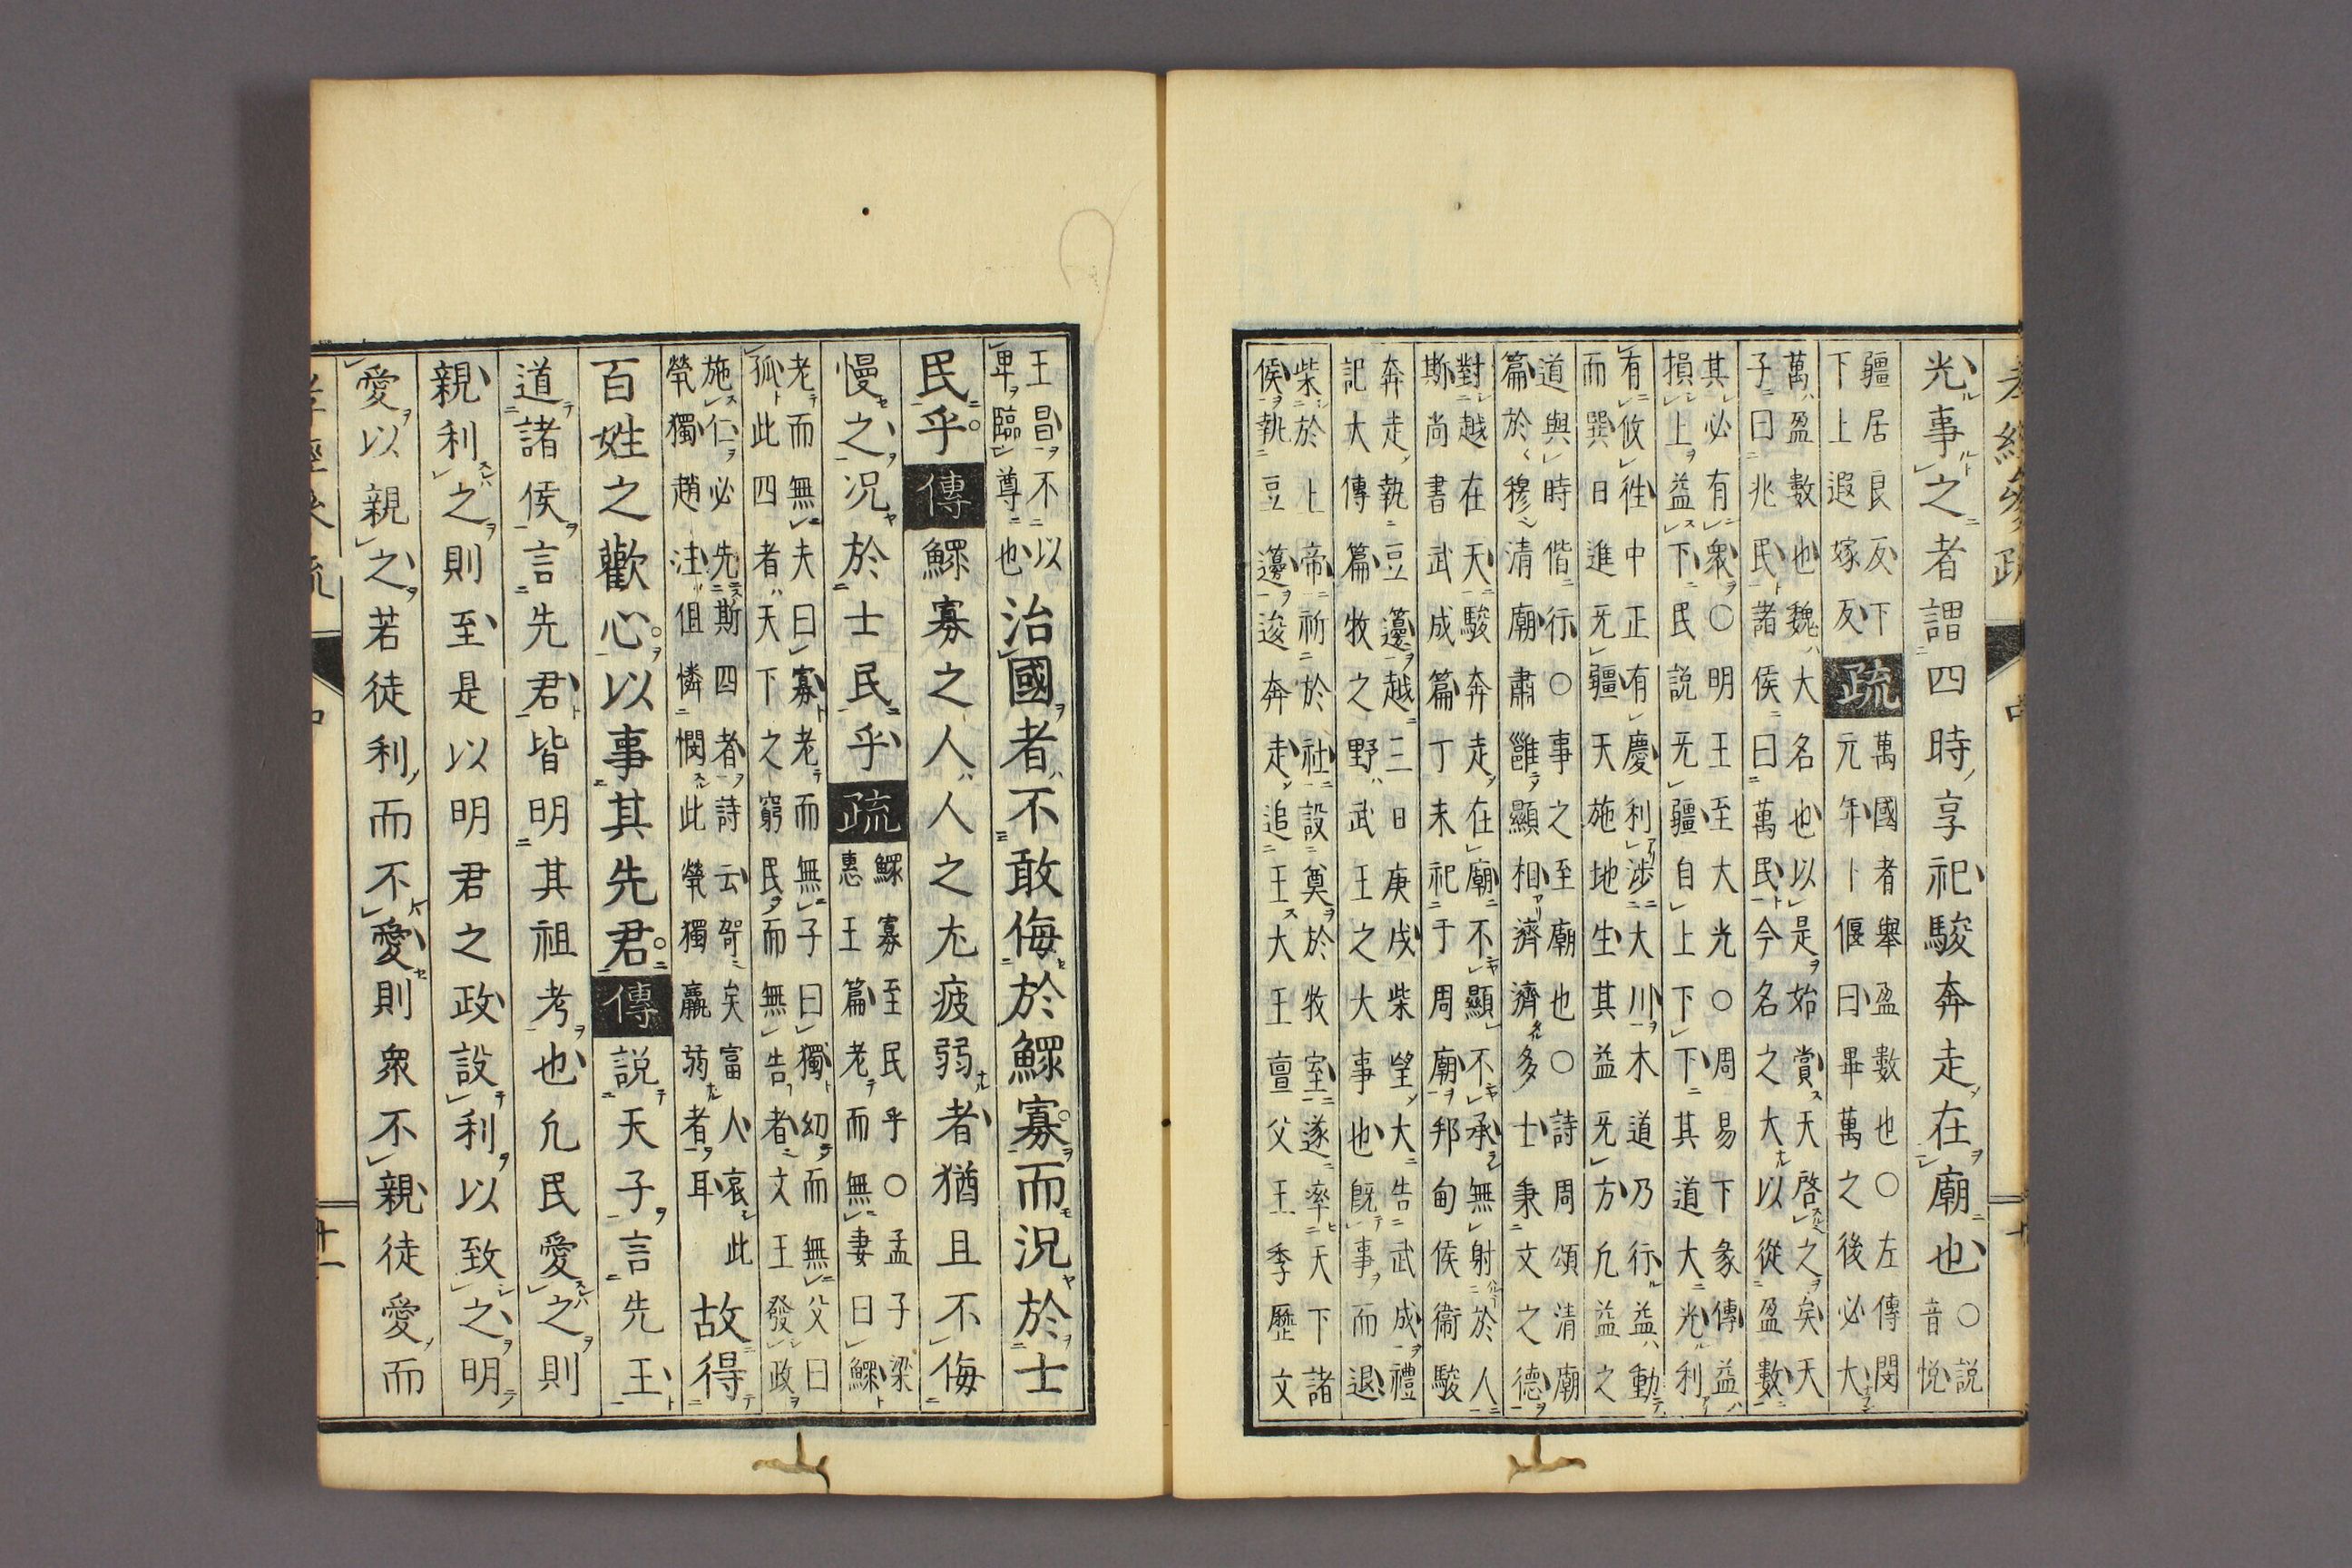 孝經參疏 中 十
光事之者謂四時享祀駿奔走在廟也○說
音悅
疆居良反下
下上遐嫁反
疏
萬國者舉盈數也○左傳閔
元年卜偃曰畢萬之後必大
萬盈數也魏大名也以是始賞天啓之矣天
子曰兆民諸侯曰萬民今名之大以從盈數
其必有衆○明王至大光○周易下彖傳益
損上益下民說无疆自上下下其道大光利
有攸往中正有慶利涉大川木道乃行益動
而巽日進无疆天施地生其益无方凡益之
道與時偕行○事之至廟也○詩周頌清廟
篇於穆清廟肅雝顯相濟濟多士秉文之德
對越在天駿奔走在廟不顯不承無射於人
斯尚書武成篇丁未祀于周廟邦甸侯衞駿
奔走執豆籩越三日庚戌柴望大告武成禮
記大傳篇牧之野武王之大事也旣事而退
柴於上帝祈於社設奠於牧室遂率天下諸
侯執豆籩逡奔走追王大王亶父王季歷文
王昌不以
卑臨尊也
治國者不敢侮於鰥寡而況於士
民乎傳鰥寡之人人之尤疲弱者猶且不侮
慢之况於士民乎疏
鰥寡至民乎○孟子梁
惠王篇老而無妻曰鰥
老而無夫曰寡老而無子曰獨幼而無父曰
孤此四者天下之窮民而無告者文王發政
施仁必先斯四者詩云哿矣富人哀此
煢獨趙注但憐憫此煢獨羸弱者耳
故得
百姓之歡心以事其先君傳說天子言先王
道諸侯言先君皆明其祖考也凡民愛之則
親利之則至是以明君之政設利以致之明
愛以親之若徒利而不愛則衆不親徒愛而
孝經參疏 中 十一